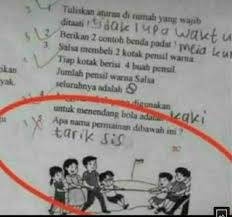 2 Tuliskan aturan di rumah yang wajib
ditaati ! tidak lupa waktu
Berikan 2 contoh benda padat ! meja
Salsa membeli 2 kotak pensil warna
Tiap kotak berisi 4 buah pensil.
Jumlah pensil warna Salsa
seluruhnya adalah 8
digunakan
untuk menendang bola adalah kaki
Apa nama permainan dibawah ini ?
tarik sis